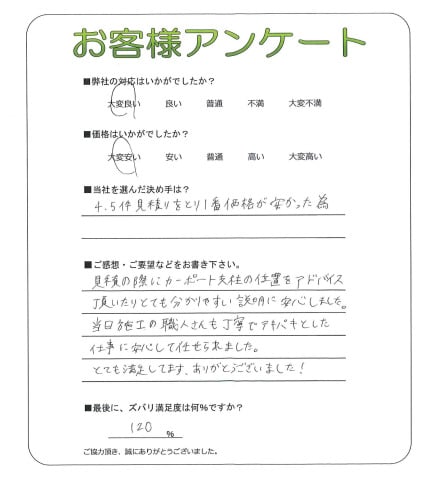 お客様アンケート
■弊社の対応はいかがでしたか？
大変良い 良い 普通 不満 大変不満
■価格はいかがでしたか？
大変安い 安い 普通 高い 大変高い
■当社を選んだ決め手は？
4.5件見積りをとり1番価格が安かった為
■ご感想・ご要望などをお書き下さい。
見積の際にカーポート支柱の位置をアドバイス
頂いたりとても分かりやすい説明に安心しました。
当日施工の職人さんも丁寧でテキパキとした
仕事に安心して任せられました。
とても満足してます、ありがとうございました！
■最後に、ズバリ満足度は何％ですか？
120 ％
ご協力頂き、誠にありがとうございました。